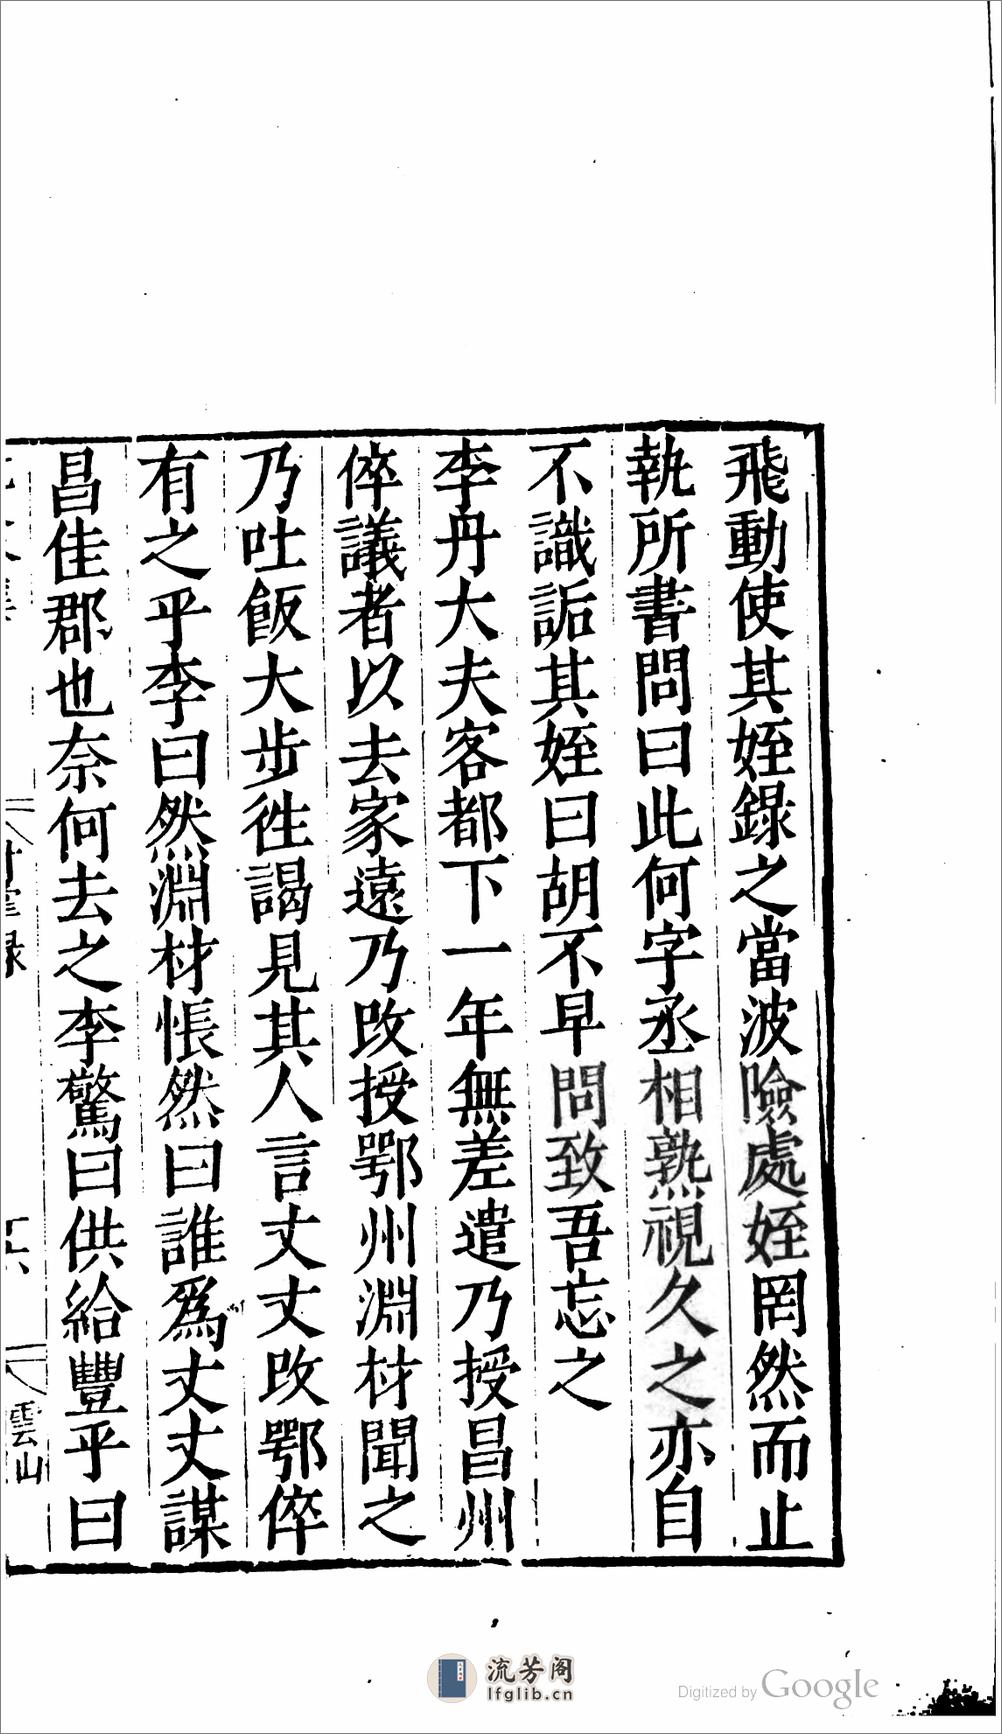 飛動使其姪錄之當波險處姪罔然而止
執所書問曰此何字丞相熟視久之亦自
不識詬其姪曰胡不早問致吾忘之
李丹大夫客都下一年無差遣乃授昌州
倅議者以去家遠乃改授鄂州淵材聞之
乃吐飯大步徃謁見其人言丈丈改鄂倅
有之乎李曰然淵材悵然曰誰爲丈丈謀
昌佳郡也奈何去之李驚曰供給豐乎曰
雲山
流芳阁
lfglib.cn
Digitized by Google